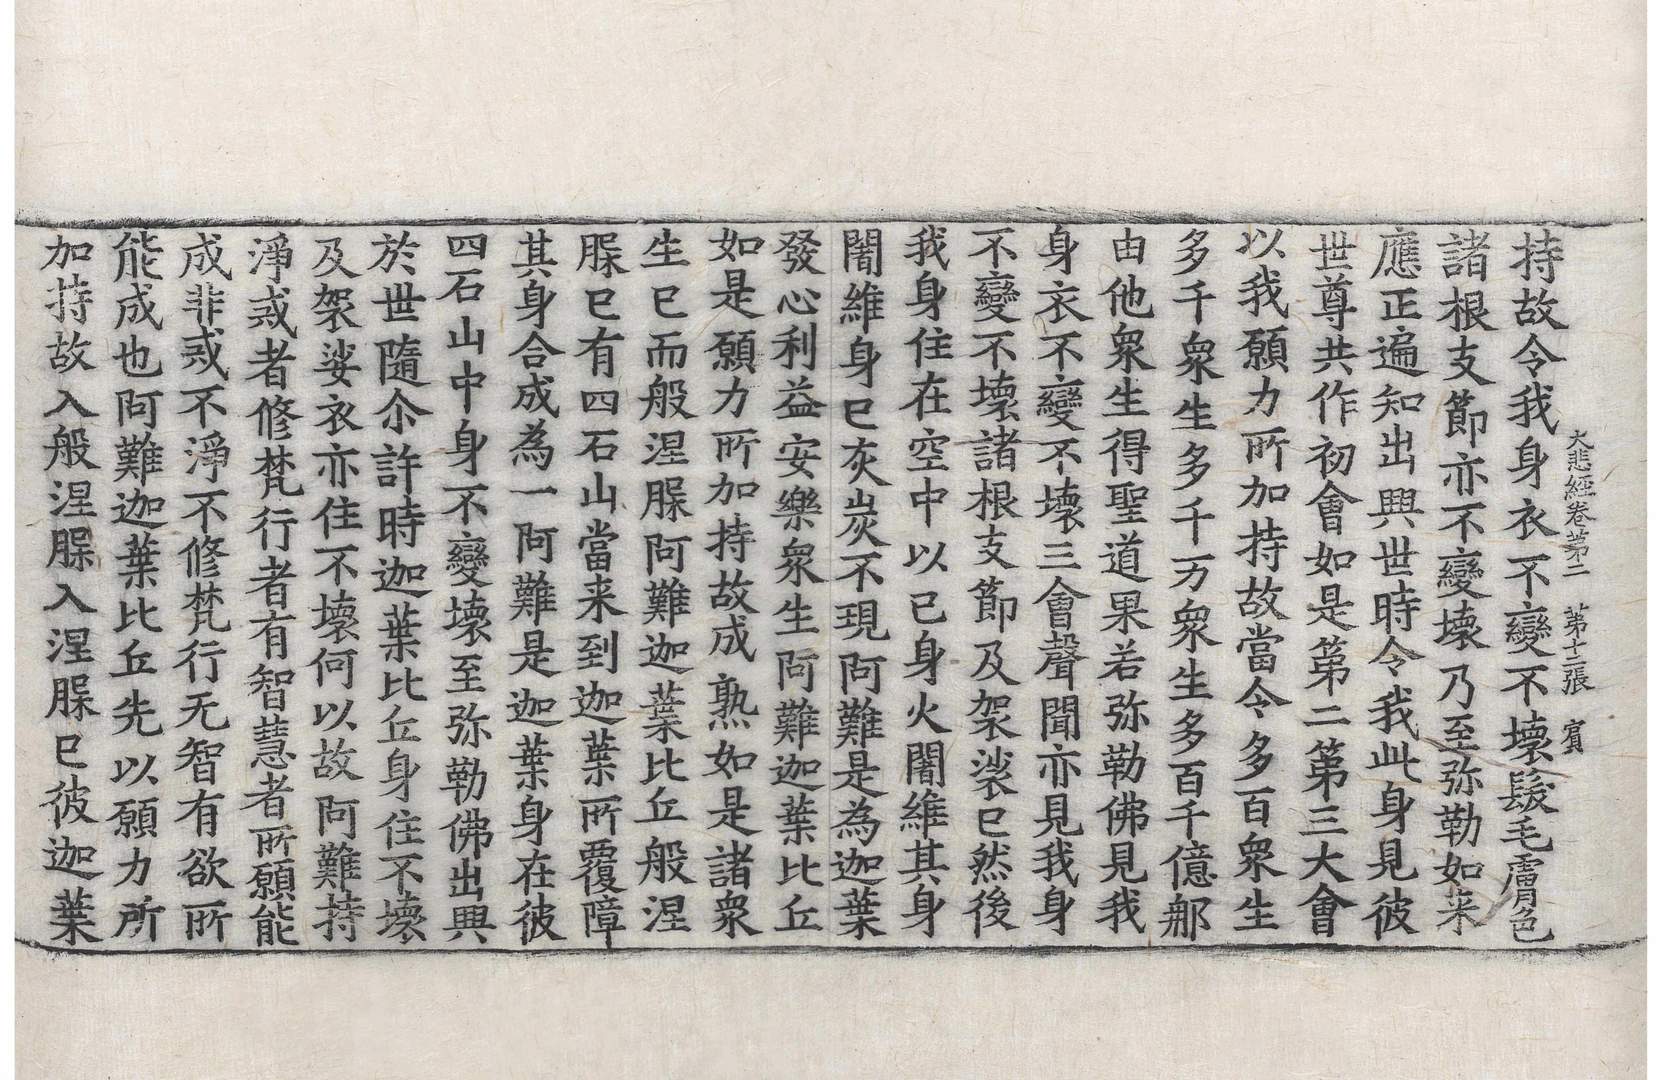 大悲經卷第二　第十二張　賓
持故令我身衣不變不壞髮毛膚色
諸根支節亦不變壞乃至弥勒如来
應正遍知出興世時令我此身見彼
世尊共作初會如是第二第三大會
以我願力所加持故當令多百衆生
多千衆生多千万衆生多百千億那
由他衆生得聖道果若弥勒佛見我
身衣不變不壞三會聲聞亦見我身
不變不壞諸根支節及袈裟已然後
我身住在空中以已身火闍維其身
闍維身已灰炭不現阿難是為迦葉
發心利益安樂衆生阿難迦葉比丘
如是願力所加持故成熟如是諸衆
生已而般涅槃阿難迦葉比丘般涅
槃已有四石山當来到迦葉所覆障
其身合成為一阿難是迦葉身在彼
四石山中身不變壞至弥勒佛出興
於世隨尒許時迦葉比丘身住不壞
及袈裟衣亦住不壞何以故阿難持
淨戒者修梵行者有智慧者所願能
成非戒不淨不修梵行无智有欲所
能成也阿難迦葉比丘先以願力所
加持故入般涅槃入涅槃已彼迦葉